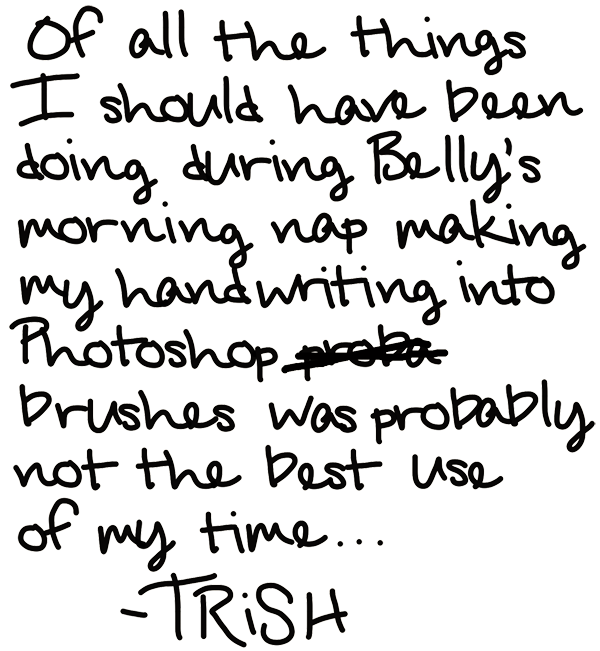 Of all the things
I should have been
doing during Belly's
morning nap making
my handwriting into
Photoshop proba
brushes was probably
not the best use
of my time...
-TRiSH